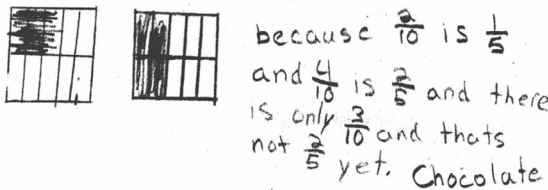 because 2/10 is 1/5
and 4/10 is 2/5 and there
is only 3/10 and thats
not 2/5 yet. Chocolate